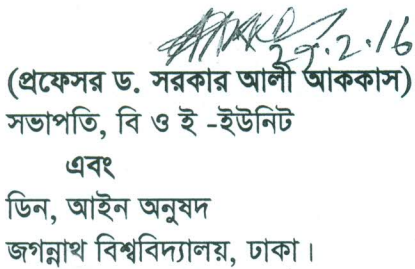 ২৮.২.১৬
(প্রফেসর ড. সরকার আলী আককাস)
সভাপতি, বি ও ই -ইউনিট
এবং
ডিন, আইন অনুষদ
জগন্নাথ বিশ্ববিদ্যালয়, ঢাকা।